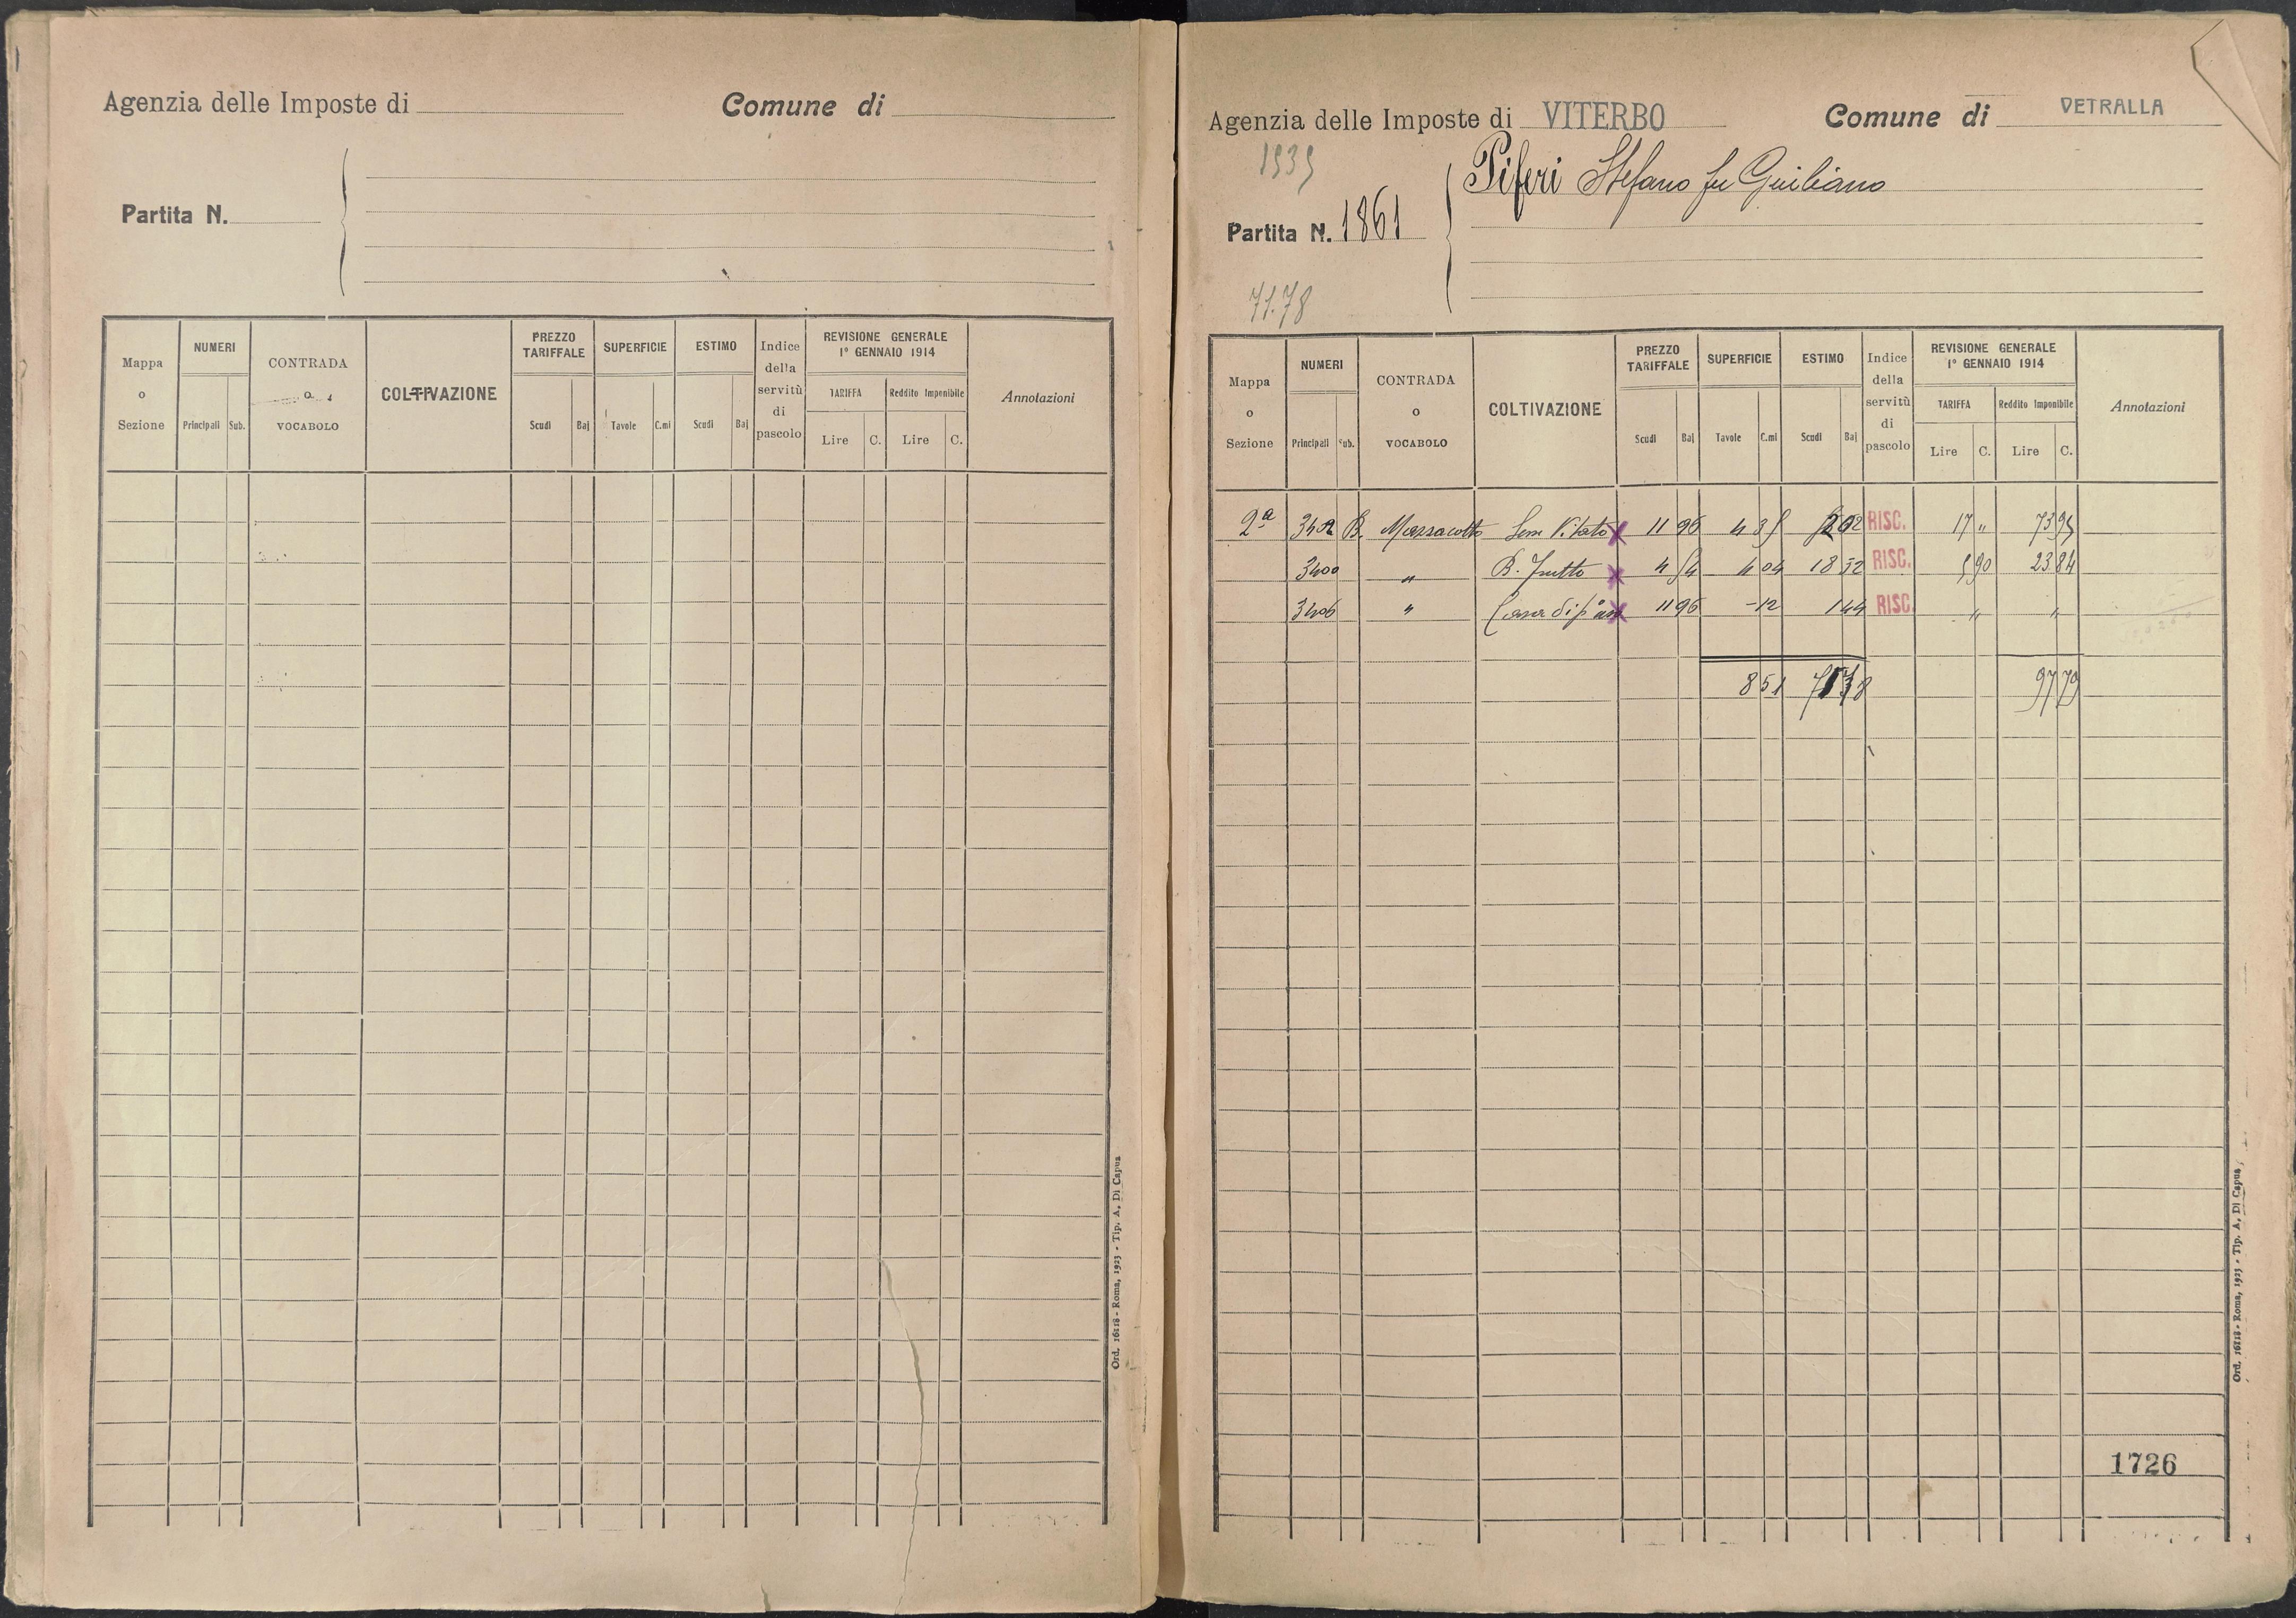 Agenzia delle Imposte di Comune di
Partita N.
Mappa o Sezione NUMERI Principali Sub. CONTRADA o VOCABOLO COLTIVAZIONE PREZZO TARIFFALE Scudi Baj SUPERFICIE Tavole C.mi ESTIMO Scudi Baj Indice della servitù di pascolo REVISIONE GENERALE 1° GENNAIO 1914 TARIFFA Lire C. Reddito Imponibile Lire C. Annotazioni
Ord. 16118 - Roma, 1923 - Tip. A. Di Capua
Agenzia delle Imposte di VITERBO Comune di VETRALLA
1939
Piferi Stefano fu Giuliano
Partita N. 1861
71.78
Mappa o Sezione NUMERI Principali Sub. CONTRADA o VOCABOLO COLTIVAZIONE PREZZO TARIFFALE Scudi Baj SUPERFICIE Tavole C.mi ESTIMO Scudi Baj Indice della servitù di pascolo REVISIONE GENERALE 1° GENNAIO 1914 TARIFFA Lire C. Reddito Imponibile Lire C. Annotazioni
2ª 3402 B. Mazzacotto Sem Vitato x 11 96 4 35 52 02 RISC. 17 " 73 95
3400 " B. frutto x 4 54 4 04 18 32 RISC. 5 90 23 84
3406 " Casa di p x 11 96 - 12 1 44 RISC. " "
8 51 71 78 97 79
1726
Ord. 16118 - Roma, 1923 - Tip. A. Di Capua